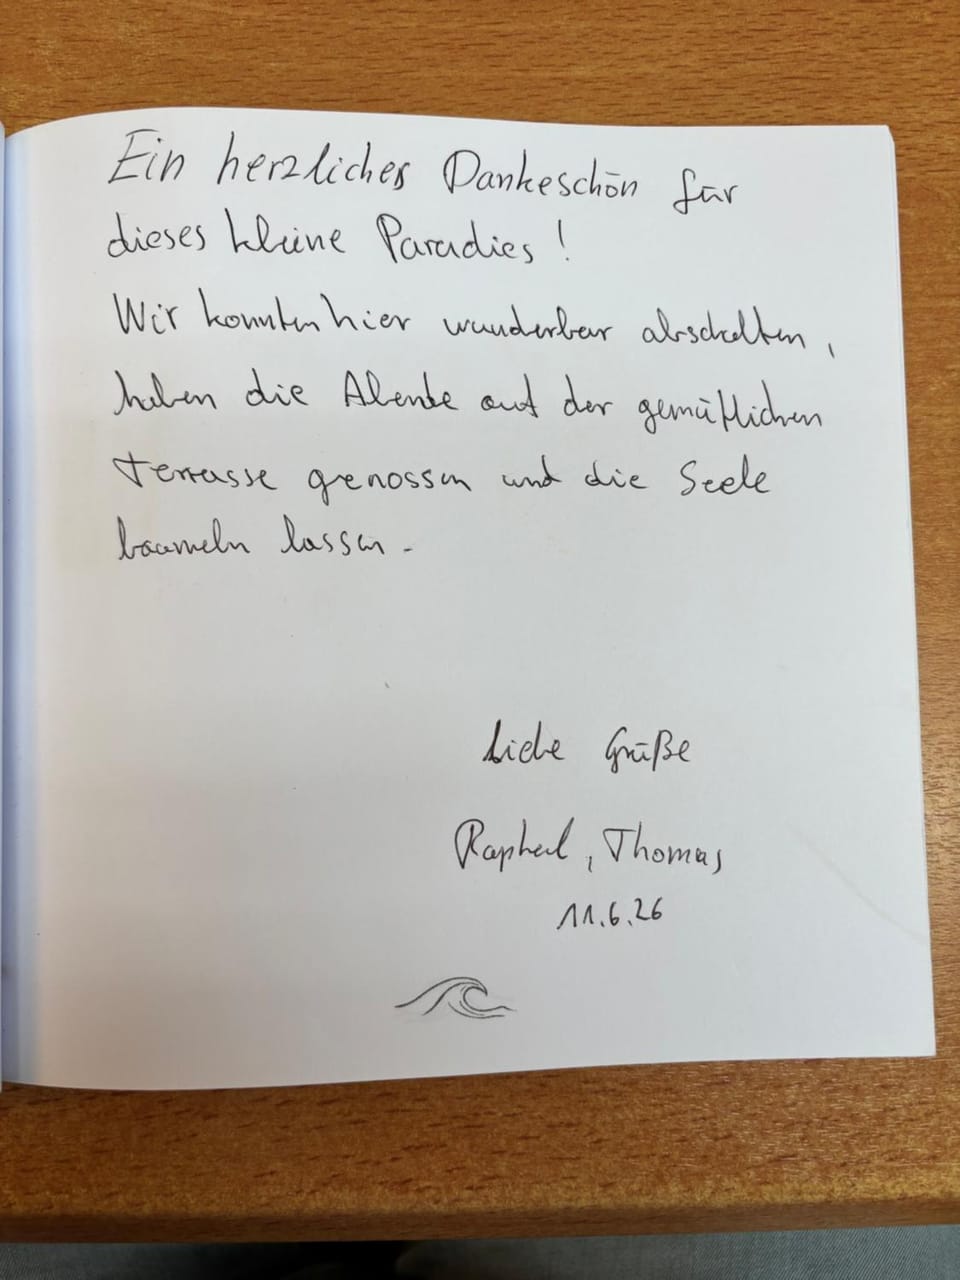 Ein herzliches Dankeschön für
dieses kleine Paradies!
Wir konnten hier wunderbar abschalten,
haben die Abende auf der gemütlichen
Terrasse genossen und die Seele
baumeln lassen.
Liebe Grüße
Raphael, Thomas
11.6.26